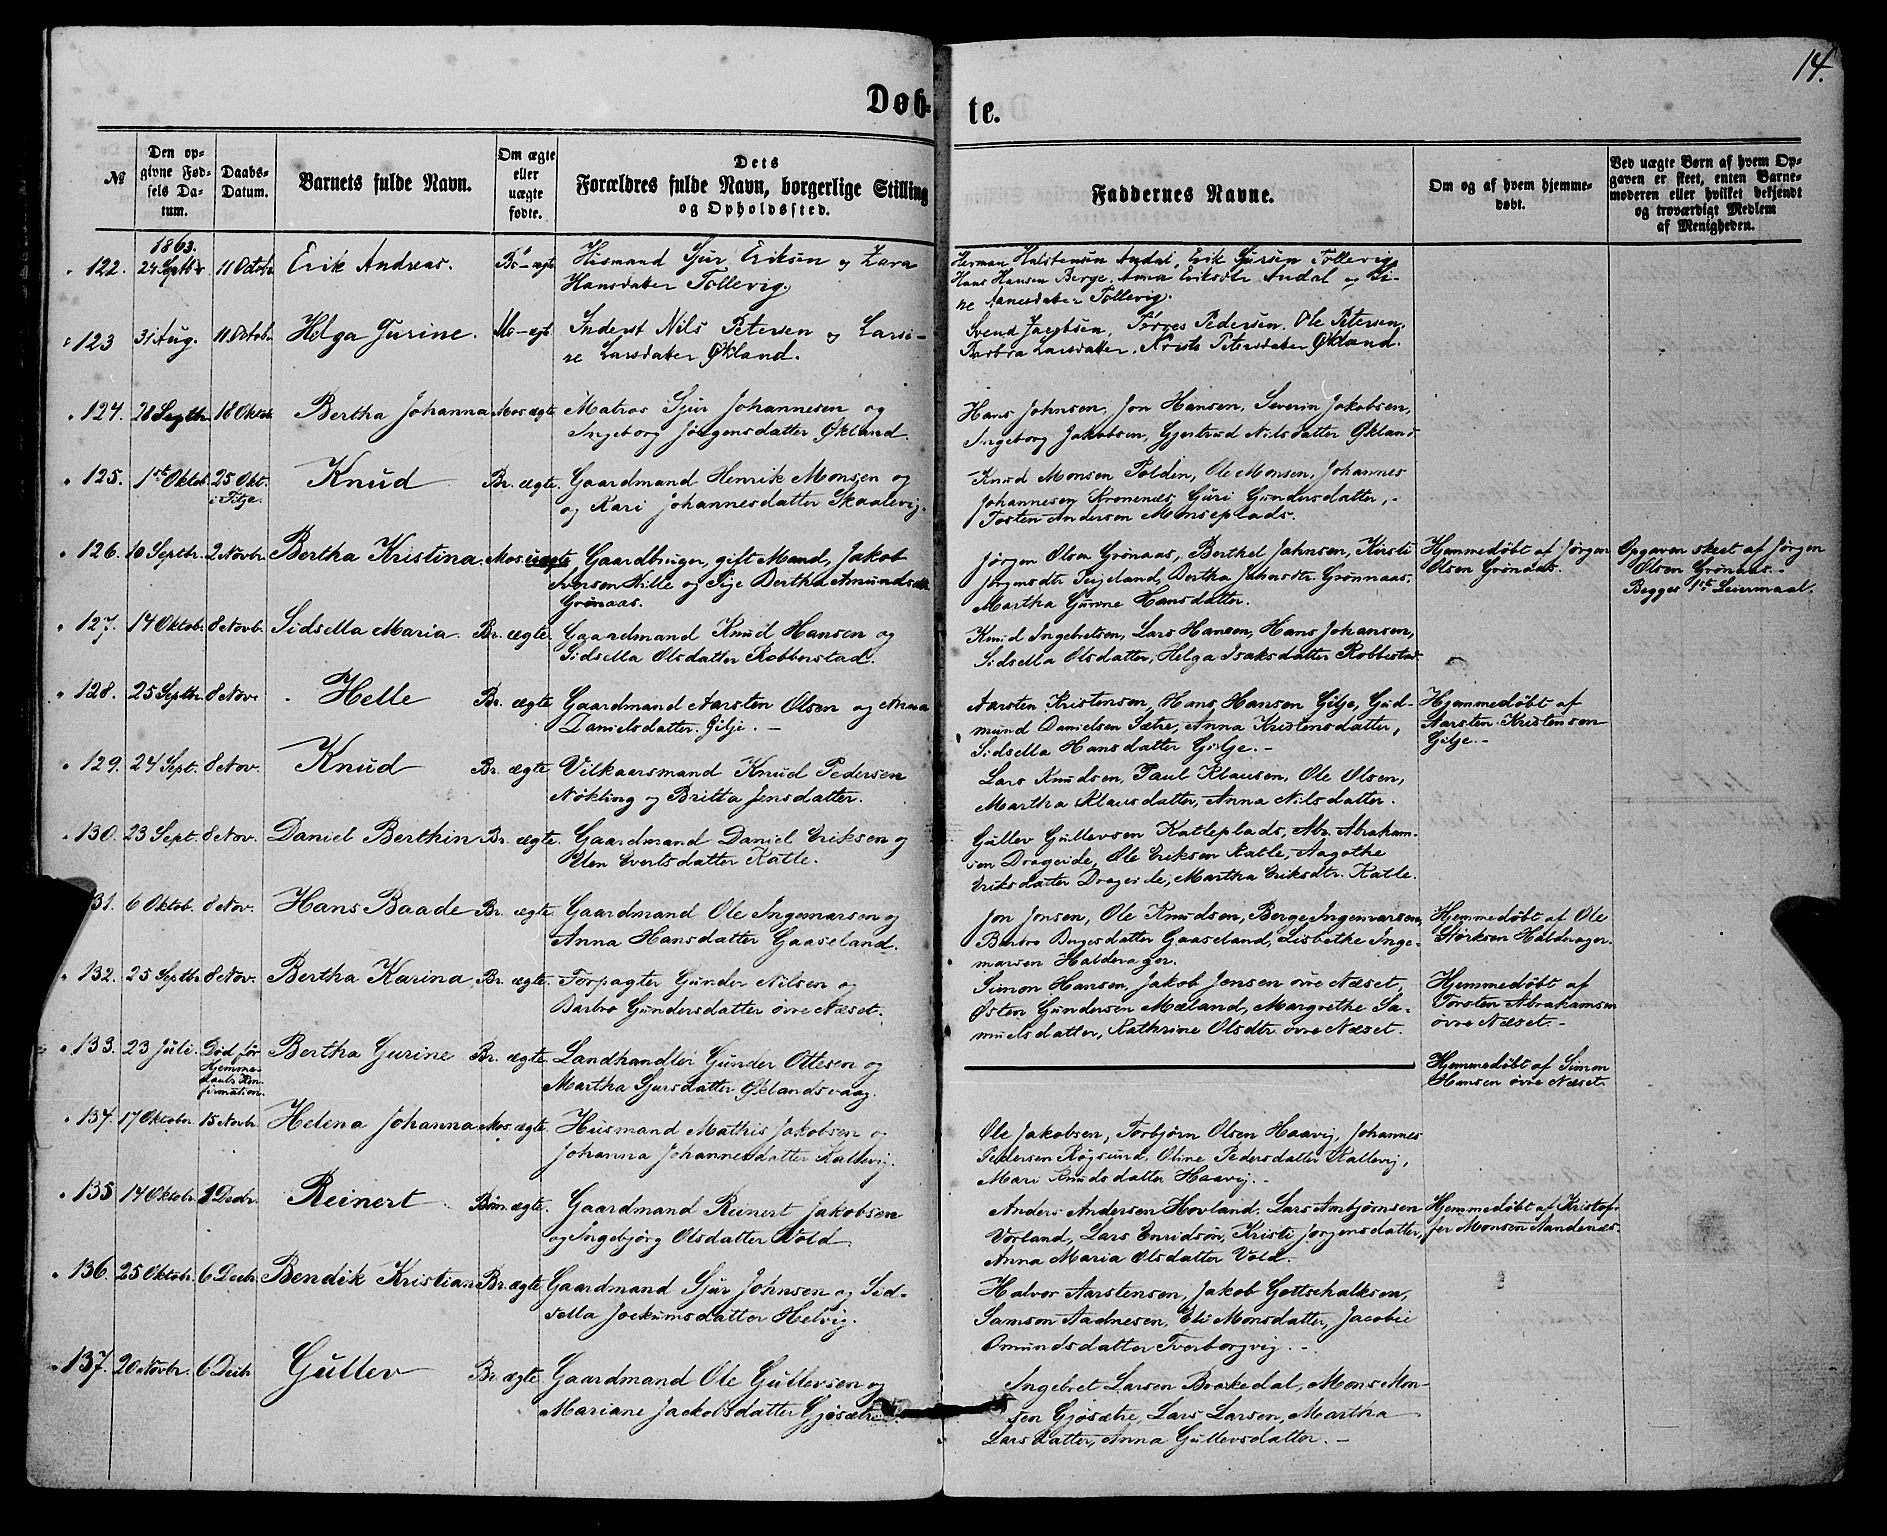 14.
Døb- te.
№
Den op-
givne Fød-
sels Da-
tum.
Daabs-
Datum.
Barnets fulde Navn.
Om ægte
eller
uægte
fødte.
Dets
Forældres fulde Navn, borgerlige Stilling
og Opholdssted.
Faddernes Navne.
Om og af hvem hjemme-
døbt.
Ved uægte Børn af hvem Op-
gaven er skeet, enten Barne-
moderen eller hvilket bekjendt
og troværdigt Medlem
af Menigheden.
1863.
122. 24 Septbr 11 Octob Erik Andreas. Br-ægt Husmand Sjur Eriksen og Lava
Hansdatter Tollevig.
Herman Halstensen Andal, Erik Tollevig
Hans Hansen Berge, Anna Eriksdtr Andal og
ne Tollevig.
123 31 Aug. 11 Octob Helga Gurine. Mo-ægt Inderst Nils Petersen og Larsi-
ne Larsdatter Økland.
Svend Jacobsen, Torres Pedersen, Ole Petersen,
Barbra Larsdatter, Petersdatter Økland.
124. 28 Septbr 18 Oktob Bertha Johanna Mos. ægte Matros Sjur Johannesen og
Ingeborg Jørgensdatter Økland
Hans Johnsen, Jon Hansen, Severin Jakobsen,
Ingeborg Jakobsen, Gjertrud Nilsdatter Økland
125. 1ste Oktob 25 Okt.
i Fitje. Knud Br. ægte. Gaardmand Henrik Monsen og
og Kari Johannesdatter Skaalevig.
Knud Monsen Polden, Ole Monsen, Johannes
Johannesen Kronenæs, Guri Gundersdatter,
Tosten Andersen Monseplads.
126. 10 Septbr. 2 Novbr. Bertha Kristina. Mos. uægte Gaardbruger, gift Mand, Jakob
Iversen Tille og Pige Bertha Amundsdtr
Grønaas.
Jørgen Olsen Grønaas, Berthel Johnsen, Kirsti
Jørgensdtr Seigeland, Bertha Johnsdtr. Grønnaas,
Martha Gurine Hansdatter.
Hjemmedøbt af Jørgen
Olsen Grønaas.
Opgaven skeet af Jørgen
Olsen Grønaas.
Begges 1ste Leiermaal.
127. 14 Oktob. 8 Novb. Sidsella Maria Br. ægte. Gaardmand Knud Hansen og
Sidsella Olsdatter Robberstad.
Knud Ingebretsen, Lars Hansen, Hans Johansen,
Sidsella Olsdatter, Helga Isaksdatter Robbestad
128. 25 Septbr. 8 Nov. Helle Br. ægte Gaardmand Aarsten Olsen og Anna
Danielsdatter Gilje.
Aarsten Kristensen, Hans Hansen Gilje, Gud-
mund Danielsen Sætre, Anna Kristensdatter,
Sidsella Hansdatter Gilje.
Hjemmedøbt af
Aarsten Kristensen
Gilje.
129. 24 Sept. 8 Nov. Knud Br. ægte Vilkaarsmand Knud Pedersen
Nøkling og Britta Jensdatter.
Lars Knudsen, Paul Klausen, Ole Olsen,
Martha Klausdatter, Anna Nilsdatter.
130. 23 Sept. 8 Nov. Daniel Berthin Br. ægte. Gaardmand Daniel Eriksen og
Elen Evertsdatter Katle.
Gullev Gullevsen Katleplads, Abr. Abraham-
sen Drageide, Ole Eriksen Katle, Aagothe
Eriksdatter Drageide, Martha Eriksdtr. Katle.
131. 6 Oktob. 8 Nov. Hans Baade Br. ægte. Gaardmand Ole Ingemarsen og
Anna Hansdatter Gaaseland.
Jon Jonsen, Ole Knudsen, Berge Ingemarsen,
Barbro Bergesdatter Gaaseland, Lisbethe Inge-
marsen Halderager.
Hjemmedøbt af Ole
Størksen Halderager.
132. 25 Septbr 8 Nov. Bertha Karina. Br. ægte. Forpagter Gunder Nilsen og
Barbro Gundersdatter øvre Næset.
Simon Hansen, Jakob Jensen øvre Næset,
Østen Gundersen Mæland, Margrethe Sa-
muelsdatter, Kathrine Olsdtr. øvre Næset.
Hjemmedøbt af
Torsten Abrahamsen
øvre Næset.
133. 23 Juli. Død før
Hjemme-
daabs Kon-
firmation. Bertha Gurine Br. ægte. Landhandler Gunder Ottesen og
Martha Sjursdatter Øklandsvaag.
Hjemmedøbt af Simon
Hansen øvre Næset.
134. 17 Oktobr. 15 Novbr. Helena Johanna Mos. ægte. Husmand Mathis Jakobsen og
Johanna Johannesdatter Kallevig.
Ole Jakobsen, Torbjørn Olsen Haavig, Johannes
Pedersen Røgsund, Oline Pedersdatter Kallevig,
Mari Knudsdatter Haavig.
135 14 Oktobr. 1 Decbr. Reinert Br. ægte. Gaardmand Reinert Jakobsen
og Ingebjørg Olsdatter Vold.
Anders Andersen Hovland, Lars Ambjørnsen
Vorland, Lars Enridsøn, Kristi Jørgensdatter,
Anna Maria Olsdatter Vold.
Hjemmedøbt af Kristof-
fer Monsen Nandenæs.
136. 25 Oktobr. 6 Decbr. Bendik Kristian Br. ægte Gaardmand Sjur Johnsen og Sid-
sella Jockumsdatter Helvig.
Halvor Aarstensen, Jakob Gottschalksen,
Samson Aadnesen, Eli Monsdatter, Jacobie
Omundsdatter Tverborgvig.
137. 20 Novbr. 6 Decbr Gullev Br. ægte. Gaardmand Ole Gullevsen og
Mariane Jackobsdatter Gjøsætre.
Ingebret Larsen Brakedal, Mons Mon-
sen Gjøsætre, Lars Larsen, Martha
Larsdatter, Anna Gullevsdatter.